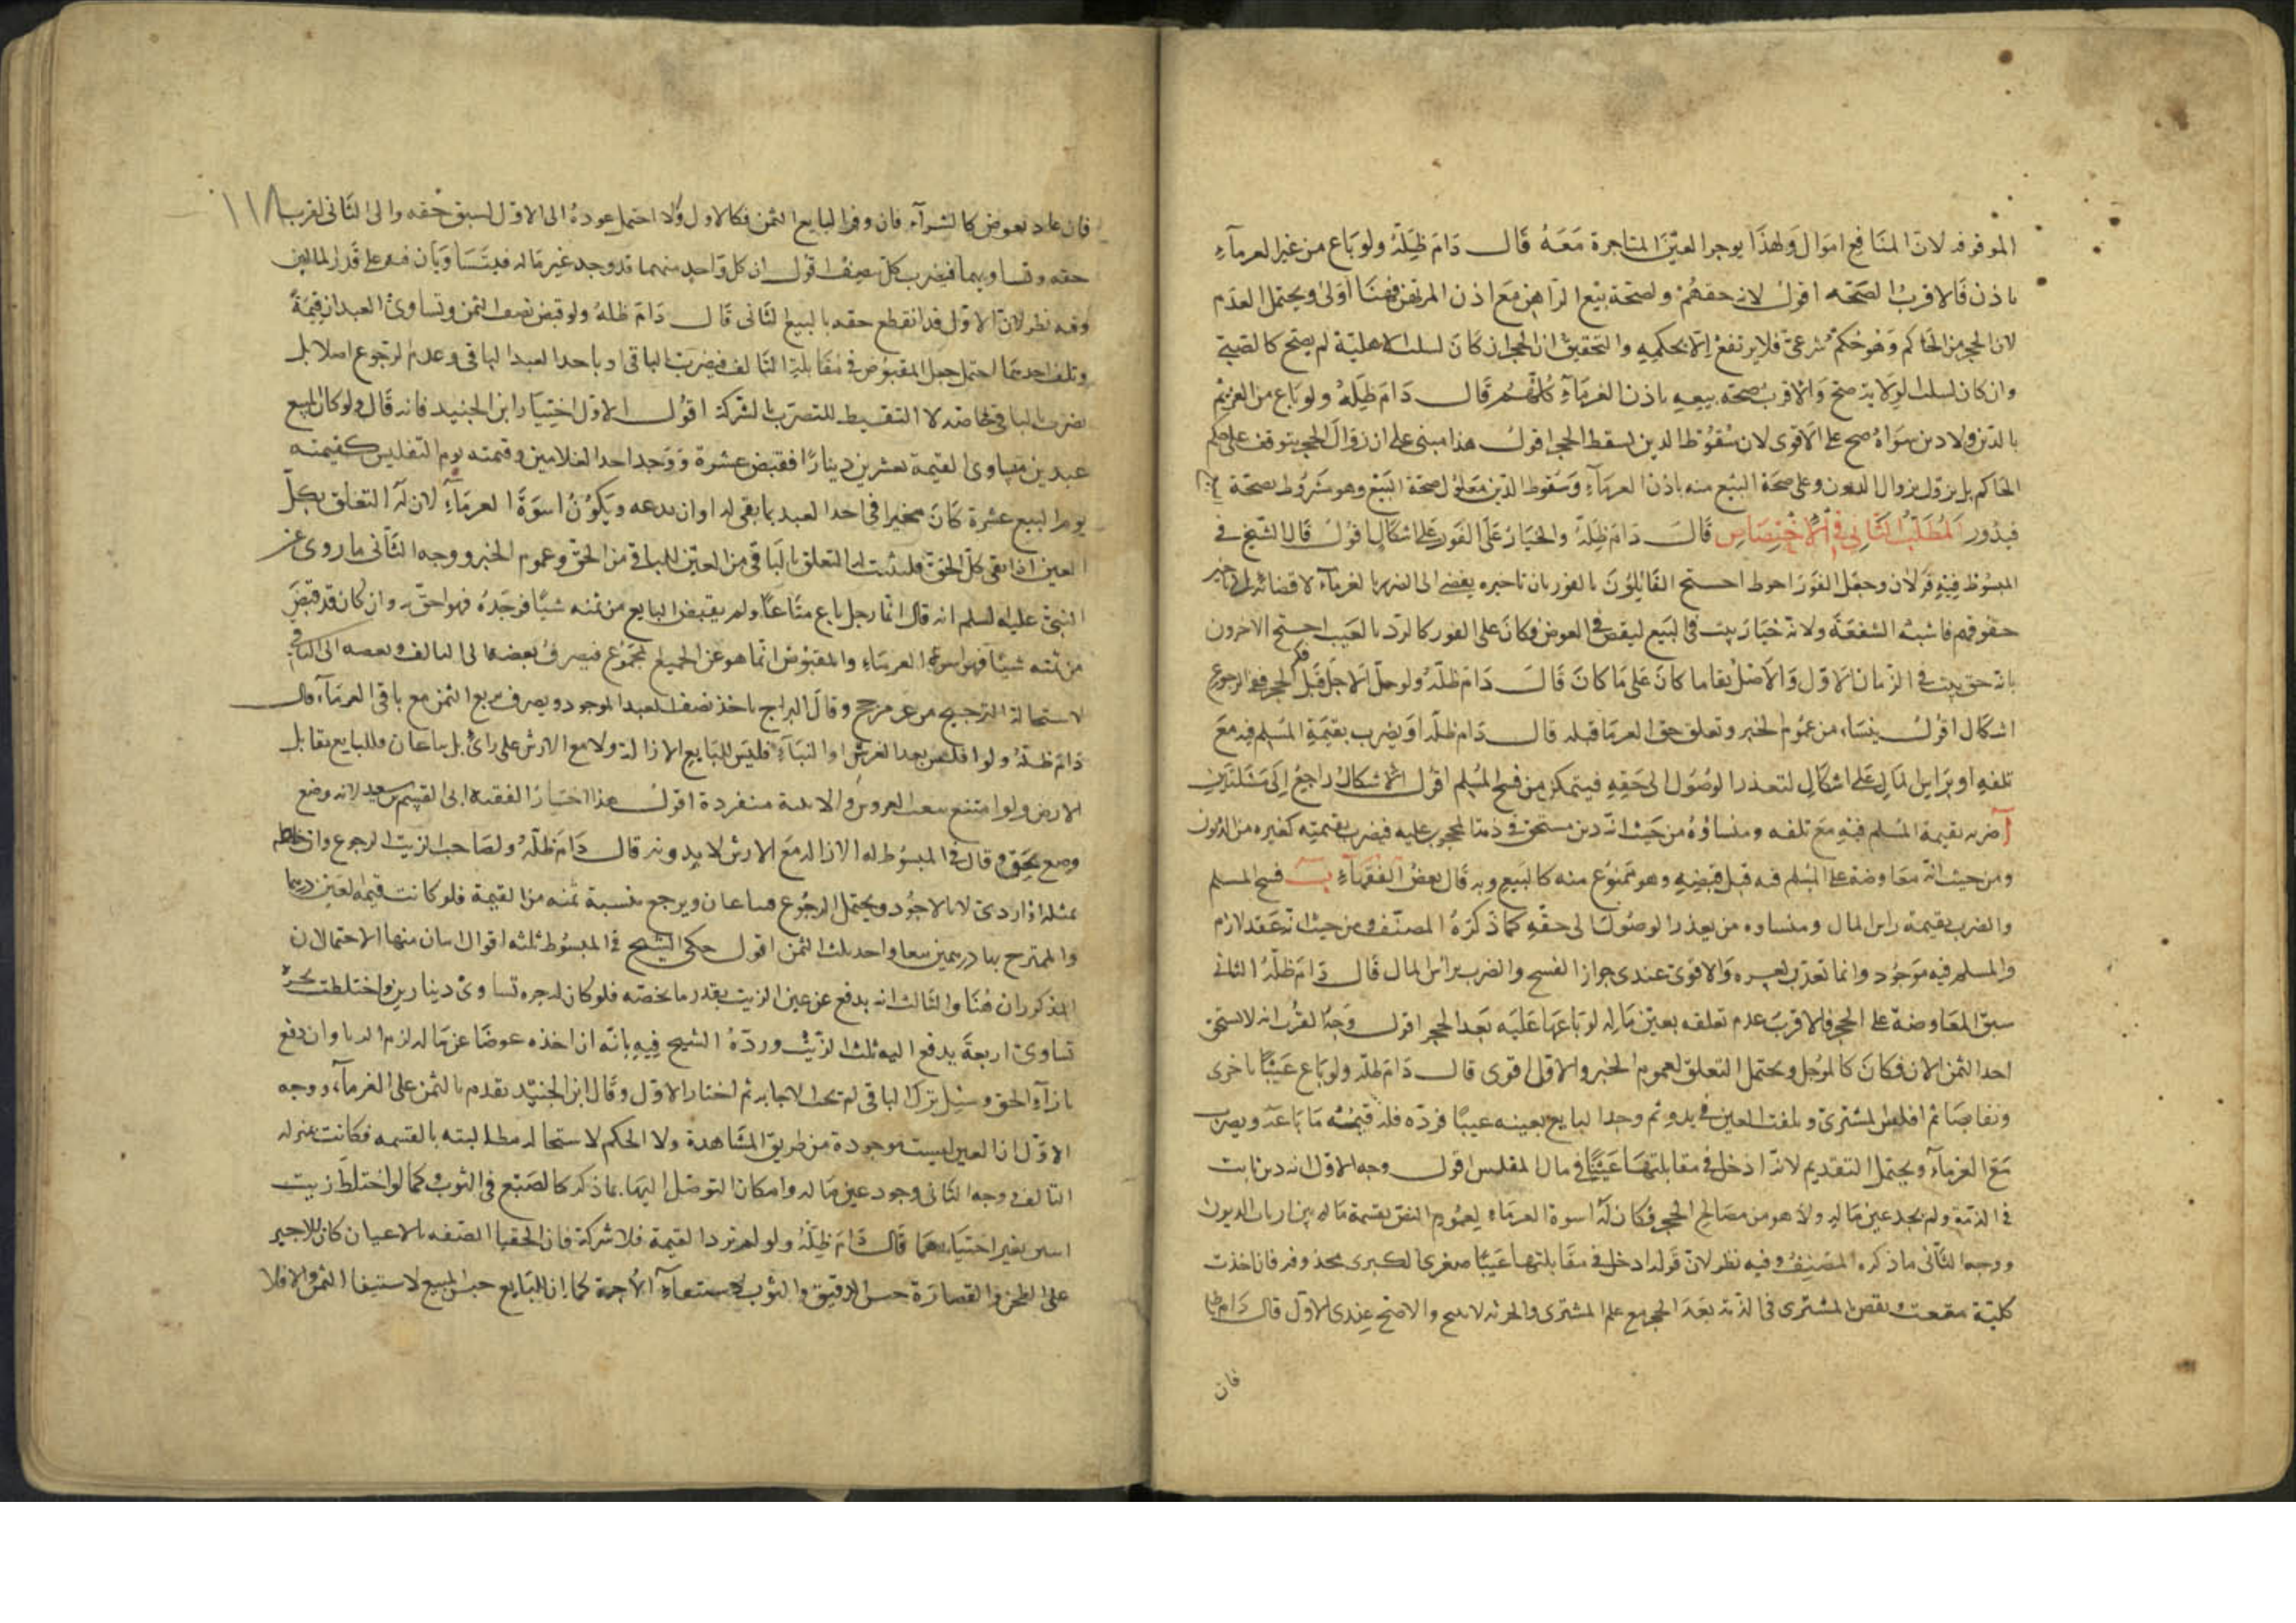 الموقوفه لان المنافع اموال ولهذا يوجر العين المتاجرة معه قال دام ظله ولو باع من غير الغرمآء
باذن فالاقرب الصحه اقول لان حقهم ولصحة بيع الراهن مع اذن المرتهن فهنا اولى ويحتمل العدم
لان الحجر من الحاكم وهو حكم شرعي فلا يرتفع الا بحكمه والتحقيق ان الحجر ان كان لسلب الاهلية لم يصح كالصبي
وان كان لسلب الولاية صح والاقرب صحة بيعه باذن الغرمآء كلهم قال دام ظله ولو باع من الغريم
بالدين ولا دين سواه صح على الاقوى لان سقوط الدين يسقط الحجر اقول هذا مبنى على ان زوال الحجر يتوقف على حكم
الحاكم بل يزول بزوال الديون وعلى صحة البيع منه باذن الغرمآء وسقوط الدين معلول لصحة البيع وهو مشروط بصحة
فيدور المطلب الثانى في الاختصاص قال دام ظله والخيار على الفور على اشكال اقول قال الشيخ في
المبسوط فيه قولان وجعل الفور احوط احتج القايلون بالفور بان تاخيره يفضى الى الضرر بالغرمآء لافضائه الى تاخير
حقوقهم فاشبه الشفعة ولانه خيار يثبت في البيع لنقص في العوض فكان على الفور كالرد بالعيب احتج الاخرون
بانه حق يثبت في الزمان الاول والاصل بقا ما كان على ما كان قال دام ظله ولو حل الاجل قبل فك الحجر ففي الرجوع
اشكال اقول ينشاء من عموم الخبر وتعلق حق الغرما قبله قال دام ظله او يضرب بقيمة المسلم فيه مع
تلفه او براس المال على اشكال لتعذر الوصول الى حقه فيتمكن من فسخ المسلم اقول الاشكال راجع الى مسئلتين
آ ضربه بقيمة المسلم فيه مع تلفه ومنشاؤه من حيث انه دين مستحق في ذمة المحجور عليه فيضرب بقيمته كغيره من الديون
ومن حيث انه معاوضة على المسلم فيه قبل قبضه وهو ممنوع منه كالبيع وبه قال بعض الفقهآء ب فسخ المسلم
والضرب بقيمة راس المال ومنشاوه من تعذر الوصول الى حقه كما ذكره المصنف ومن حيث انه عقد لازم
والمسلم فيه موجود وانما تعذر لعسره والاقوى عندى جواز الفسخ والضرب براس المال قال دام ظله الثانى
سبق المعاوضة على الحجر فالاقرب عدم تعلقه بعين ماله لو باعها عليه بعد الحجر اقول وجه القرب انه لا يستحق
احد الثمن الان فكان كالموجل ويحتمل التعلق لعموم الخبر والاول اقوى قال دام ظله ولو باع عينا باخرى
وتقابضا ثم افلس المشترى وتلفت العين في يده ثم وجد البايع بعينه عيبا فرده فله قيمة ما باعه ويضرب
مع الغرمآء ويحتمل التقديم لانه ادخل في مقابلتها عينا في مال المفلس اقول وجه الاول انه دين ثابت
في الذمة ولم يجد عين ماله ولا هو من مصالح الحجر فكان له اسوة الغرماء لعموم النص بقسمة ماله بين ارباب الديون
ووجه الثانى ما ذكره المصنف وفيه نظر لان قوله ادخل في مقابلتها عينا صغرى الكبرى محذوفه فان اخذت
كلية بعد الحجر مع علم المشترى والاصح عندى الاول قال دام ظله
فان
١١٨
فان عاد بعوض كالشرآء فان وفر البايع الثمن فكالاول والا احتمل عوده الى الاول لسبق حقه والى الثانى لقرب
حقه وتساويهما فيضرب كل بنصف اقول ان كل واحد منهما قد وجد عين ماله فيتساويان على قدر المالين
وفيه نظر لان الاول قد انقطع حقه بالبيع الثانى قال دام ظله ولو قبض نصف الثمن وتساوى العبدان قيمة
وتلف احدهما احتمل جعل المقبوض في مقابلة التالف فيضرب بالباقى او ياخذ العبد الباقى وعدم الرجوع اصلا بل
يضرب بالباقى خاصة لا التقسيط للتضرر بالشركة اقول الاول اختيار ابن الجنيد فانه قال ولو كان المبيع
عبدين متساوى القيمة بعشرين دينارا فقبض عشرة ووجد احد الغلامين وقيمته يوم التفليس كقيمته
يوم البيع عشرة كان مخيرا في اخذ العبد بما بقى له او ان يدعه ويكون اسوة الغرمآء لان له التعلق بكل
العين اذا بقى كل الحق فليثبت له التعلق بالباقى من العين للباقى من الحق وعموم الخبر ووجه الثانى ما روى عن
النبى عليه السلم انه قال ايما رجل باع متاعا ولم يقبض البايع من ثمنه شيئا فوجده فهو احق به وان كان قد قبض
من ثمنه شيئا فهو اسوة الغرماء والمقبوض انما هو عن الجميع لمجموع فيصرف بعضه الى التالف وبعضه الى الباقى
لاستحالة الترجيح من غير مرجح وقال البراج ياخذ نصف العبد الموجود ويصرف بربع الثمن مع باقى الغرمآء قال
دام ظله ولو افلس بعد الغرس او البنآء فليس للبايع الازالة ولا مع الارش على راى بل يباعان وللبايع مقابل
الارض ولو امتنع بيعت الغروس والابنية منفردة اقول هذا اختيار الفقيه ابى القسم بن سعيد لانه وضع
وضع بحق وقال في المبسوط له الازاله مع الارش لا بدونه قال دام ظله ولصاحب الزيت الرجوع وان خلط
بمثله او اردى لا بالاجود ويحتمل الرجوع فيباعان ويرجع بنسبة ثمنه من القيمة فلو كانت قيمة العين درهما
والممتزج بها درهمين بيعا واخذ ثلث الثمن اقول حكى الشيخ في المبسوط ثلثه اقوال اثنان منها الاحتمالان
المذكوران هنا والثالث انه يدفع عن عين الزيت بقدر ما يخصه فلو كان له جره تساوى دينارين واختلطت بجرة
تساوى اربعة يدفع اليه ثلث الزيت ورده الشيخ فيه بانه ان اخذه عوضا عن ماله لزم الربا وان دفع
بازآء الحق وسئل ترك الباقى لم يجب الاجابه ثم اختار الاول وقال ابن الجنيد يقدم بالثمن على الغرمآء ووجه
الاول ان العين ليست موجودة من طريق المشاهدة ولا الحكم لاستحاله مطالبته بالقسمه فكانت بمنزله
التالف ووجه الثانى وجود عين ماله وامكان التوصل اليها بما ذكر كالصبغ في الثوب وكما لو اختلط زيت
اثنين بغير اختيارهما قال دام ظله ولو لم تزد القيمة فلا شركة فان الحقنا الصفه بالاعيان كان للاجير
على الطحن والقصارة حبس الدقيق والثوب لاستيفآء الاجرة كما ان للبايع حبس المبيع لاستيفا الثمن والا فلا